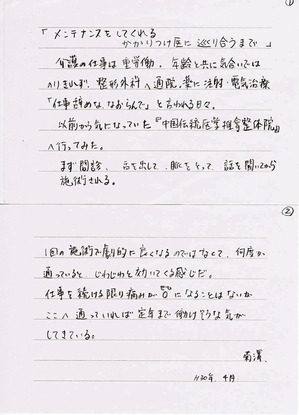 ①
「メンテナンスをしてくれる
かかりつけ医に巡り合うまで」
介護の仕事は重労働。年齢と共に気合いでは
のりきれず、整形外科へ通院。薬に注射・電気治療
「仕事辞めな、なおらんで」と言われる日々。
以前から気になっていた『中国伝統医学推拿整体院』
へ行ってみた。
まず問診、舌を出して、脈をとって、話を聞いてから
施術される。
②
1回の施術で劇的に良くなるのではなくて、何度か
通っていると、じわじわと効いてくる感じだ。
仕事を続ける限り痛みが0になることはないが
ここへ通っていれば定年まで働けそうな気が
してきている。
H30年 4月